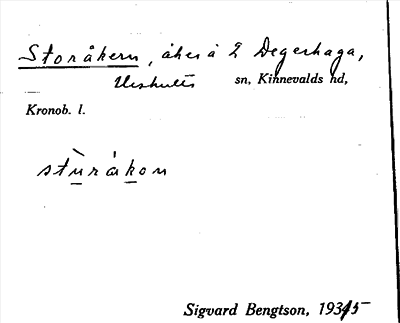 Storåkern, åker å 2 Degerhaga,
Urshults sn, Kinnevalds hd,
Kronob. l.
stù̱råḵon
Sigvard Bengtson, 1935